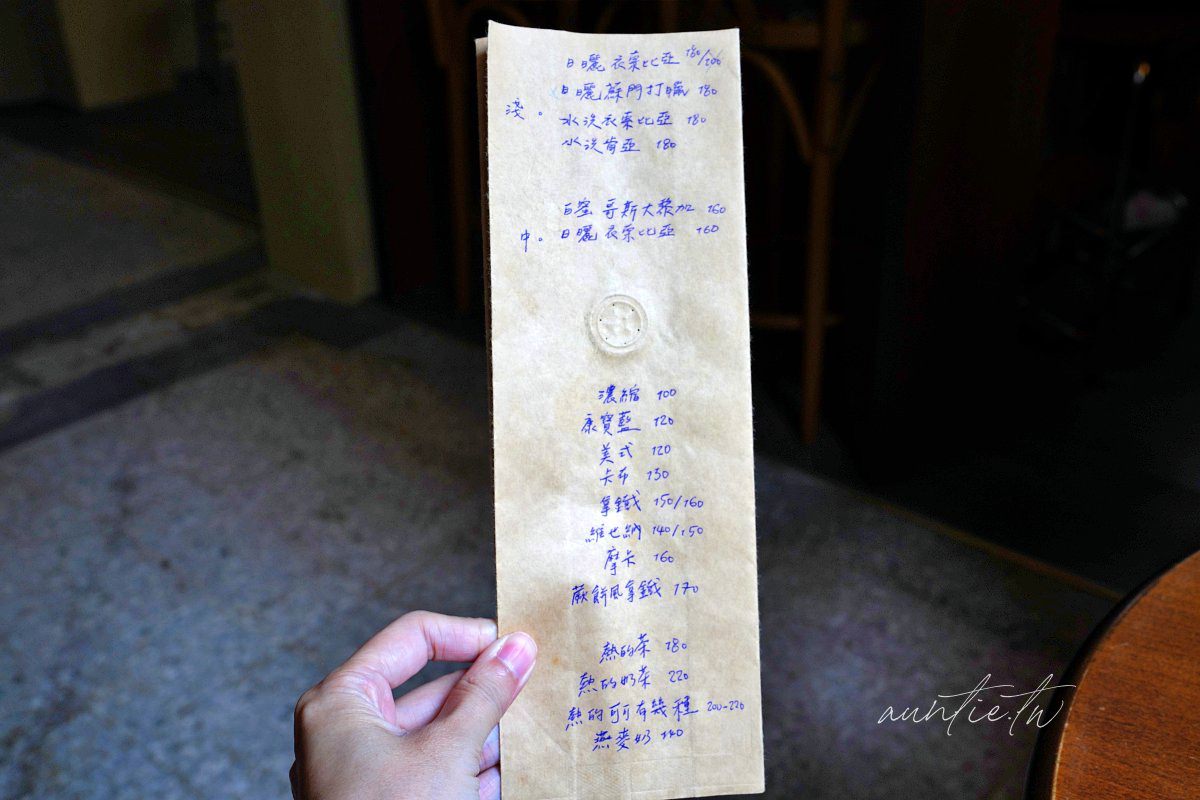 日曬 衣索比亞 180/200
日曬 蘇門打臘 180
淺。
水洗衣索比亞 180
水洗肯亞 180
白蜜 哥斯大黎加 160
中。 日曬 衣索比亞 160
濃縮 100
康寶藍 120
美式 120
卡布 130
拿鐵 150/160
維也納 140/150
摩卡 160
蕨餅風拿鐵 170
熱的茶 180
熱的奶茶 220
熱的可可有幾種 200-220
燕麥奶 140
auntie.tw